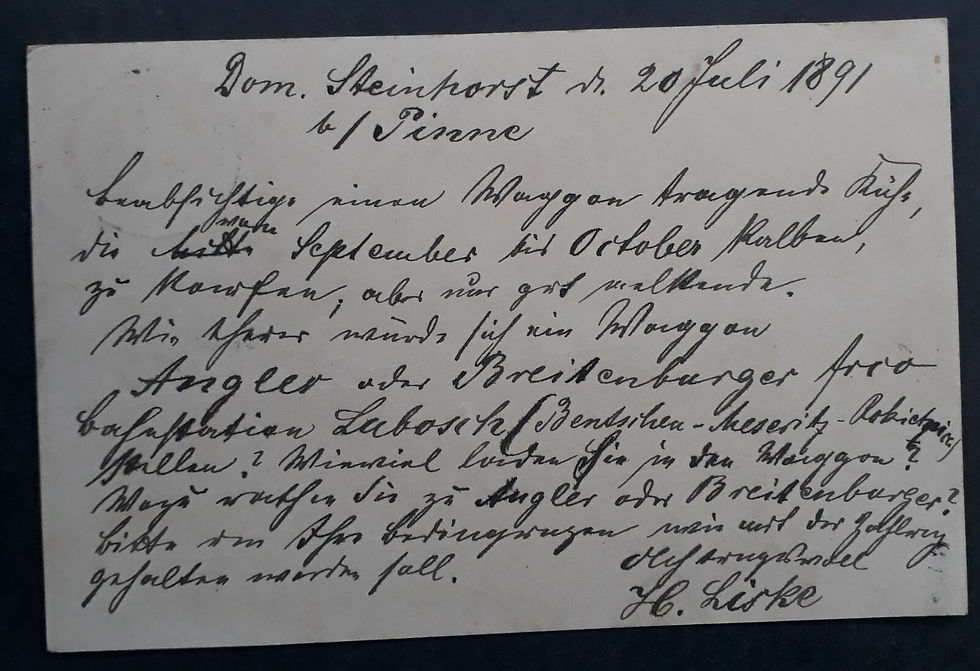 Dom. Steinhorst d. 20 Juli 1891
b/ Pinne
Beabsichtige einen Waggon tragende Kühe,
die Mitte vom September bis October kalben,
zu kaufen, aber nur gut melkende.
Wie theuer würde sich ein Waggon
Angler oder Breitenburger frco
Bahnstation Lubosch (Bentschen-Meseritz-Rokietnica)
stellen? Wieviel laden Sie in den Waggon?
Wozu rathen Sie zu Angler oder Breitenburger?
Bitte um Ihre Bedingungen wie mit der Zahlung
gehalten werden soll.
Achtungsvoll
H. Liske